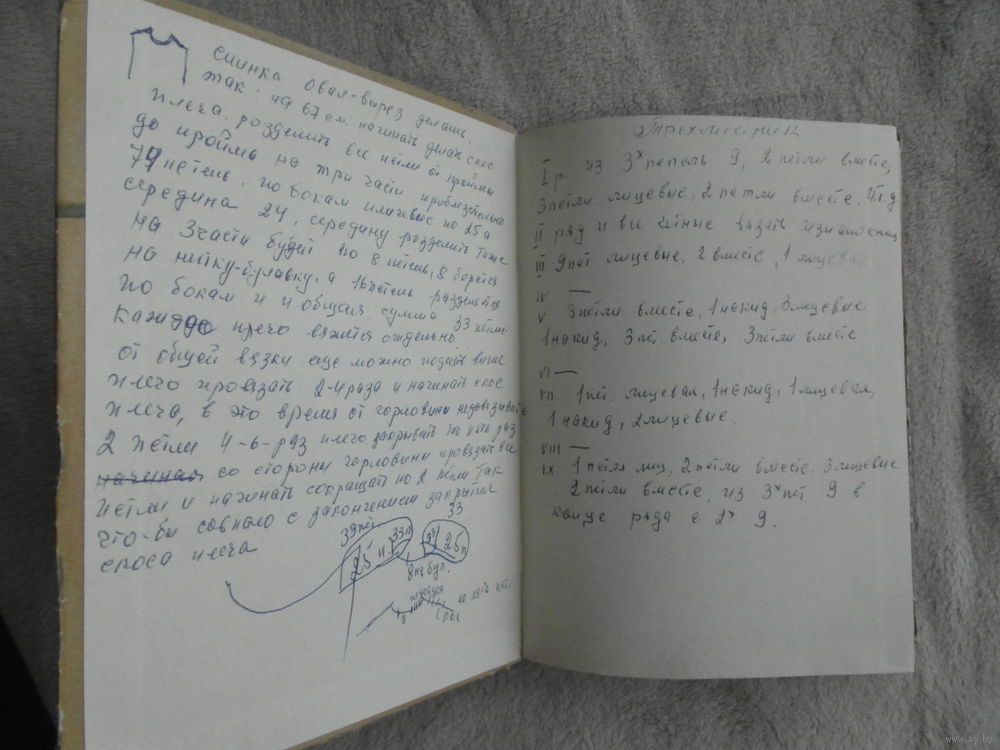 спинка овал-вырез делать
так: на 67 см. начинать делать скос
плеча, разделить все петли от проймы
до проймы на три части приблизительно
74 петель, по бокам плечевые по 25 а
середина 24, середину разделить тоже
на 3 части будет по 8 петель, 8 берется
на нитку-булавку, а 16 петель разделятся
по бокам и общая сумма 33 петли
каждое плечо вяжется отдельно
от общей вязки еще можно поднять выше
плечо провязать 2-4 раза и начинать скос
плеча, в это время от горловины недовязывать
2 петли 4-6-раз плечо закрывать по пять раз
начиная со стороны горловины провязать все
петли и начинать сокращать по 2 петли так
что-бы совпало с закончением закрытия
скоса плеча
39 пет 33
25 п. 33 п 25 п
8 на бул.
скос по пет.
Трехлистник
I р. из 3х петель 9, 2 петли вместе,
3 петли лицевые, 2 петли вместе. И т. д
II ряд и все чётные вязать изнаночные
III 9 пет лицевые, 2 вместе, 1 лицевая
IV —
V 3 петли вместе, 1 накид, 3 лицевые
1 накид, 3 пет вместе, 3 петли вместе
VI —
VII 1 пет. лицевая, 1 накид, 1 лицевая,
1 накид, 2 лицевые.
VIII —
IX 1 петля лиц, 2 петли вместе, 3 лицевые
2 петли вместе, из 3х пет 9 в
конце ряда с 2х 9.
www.ay.by